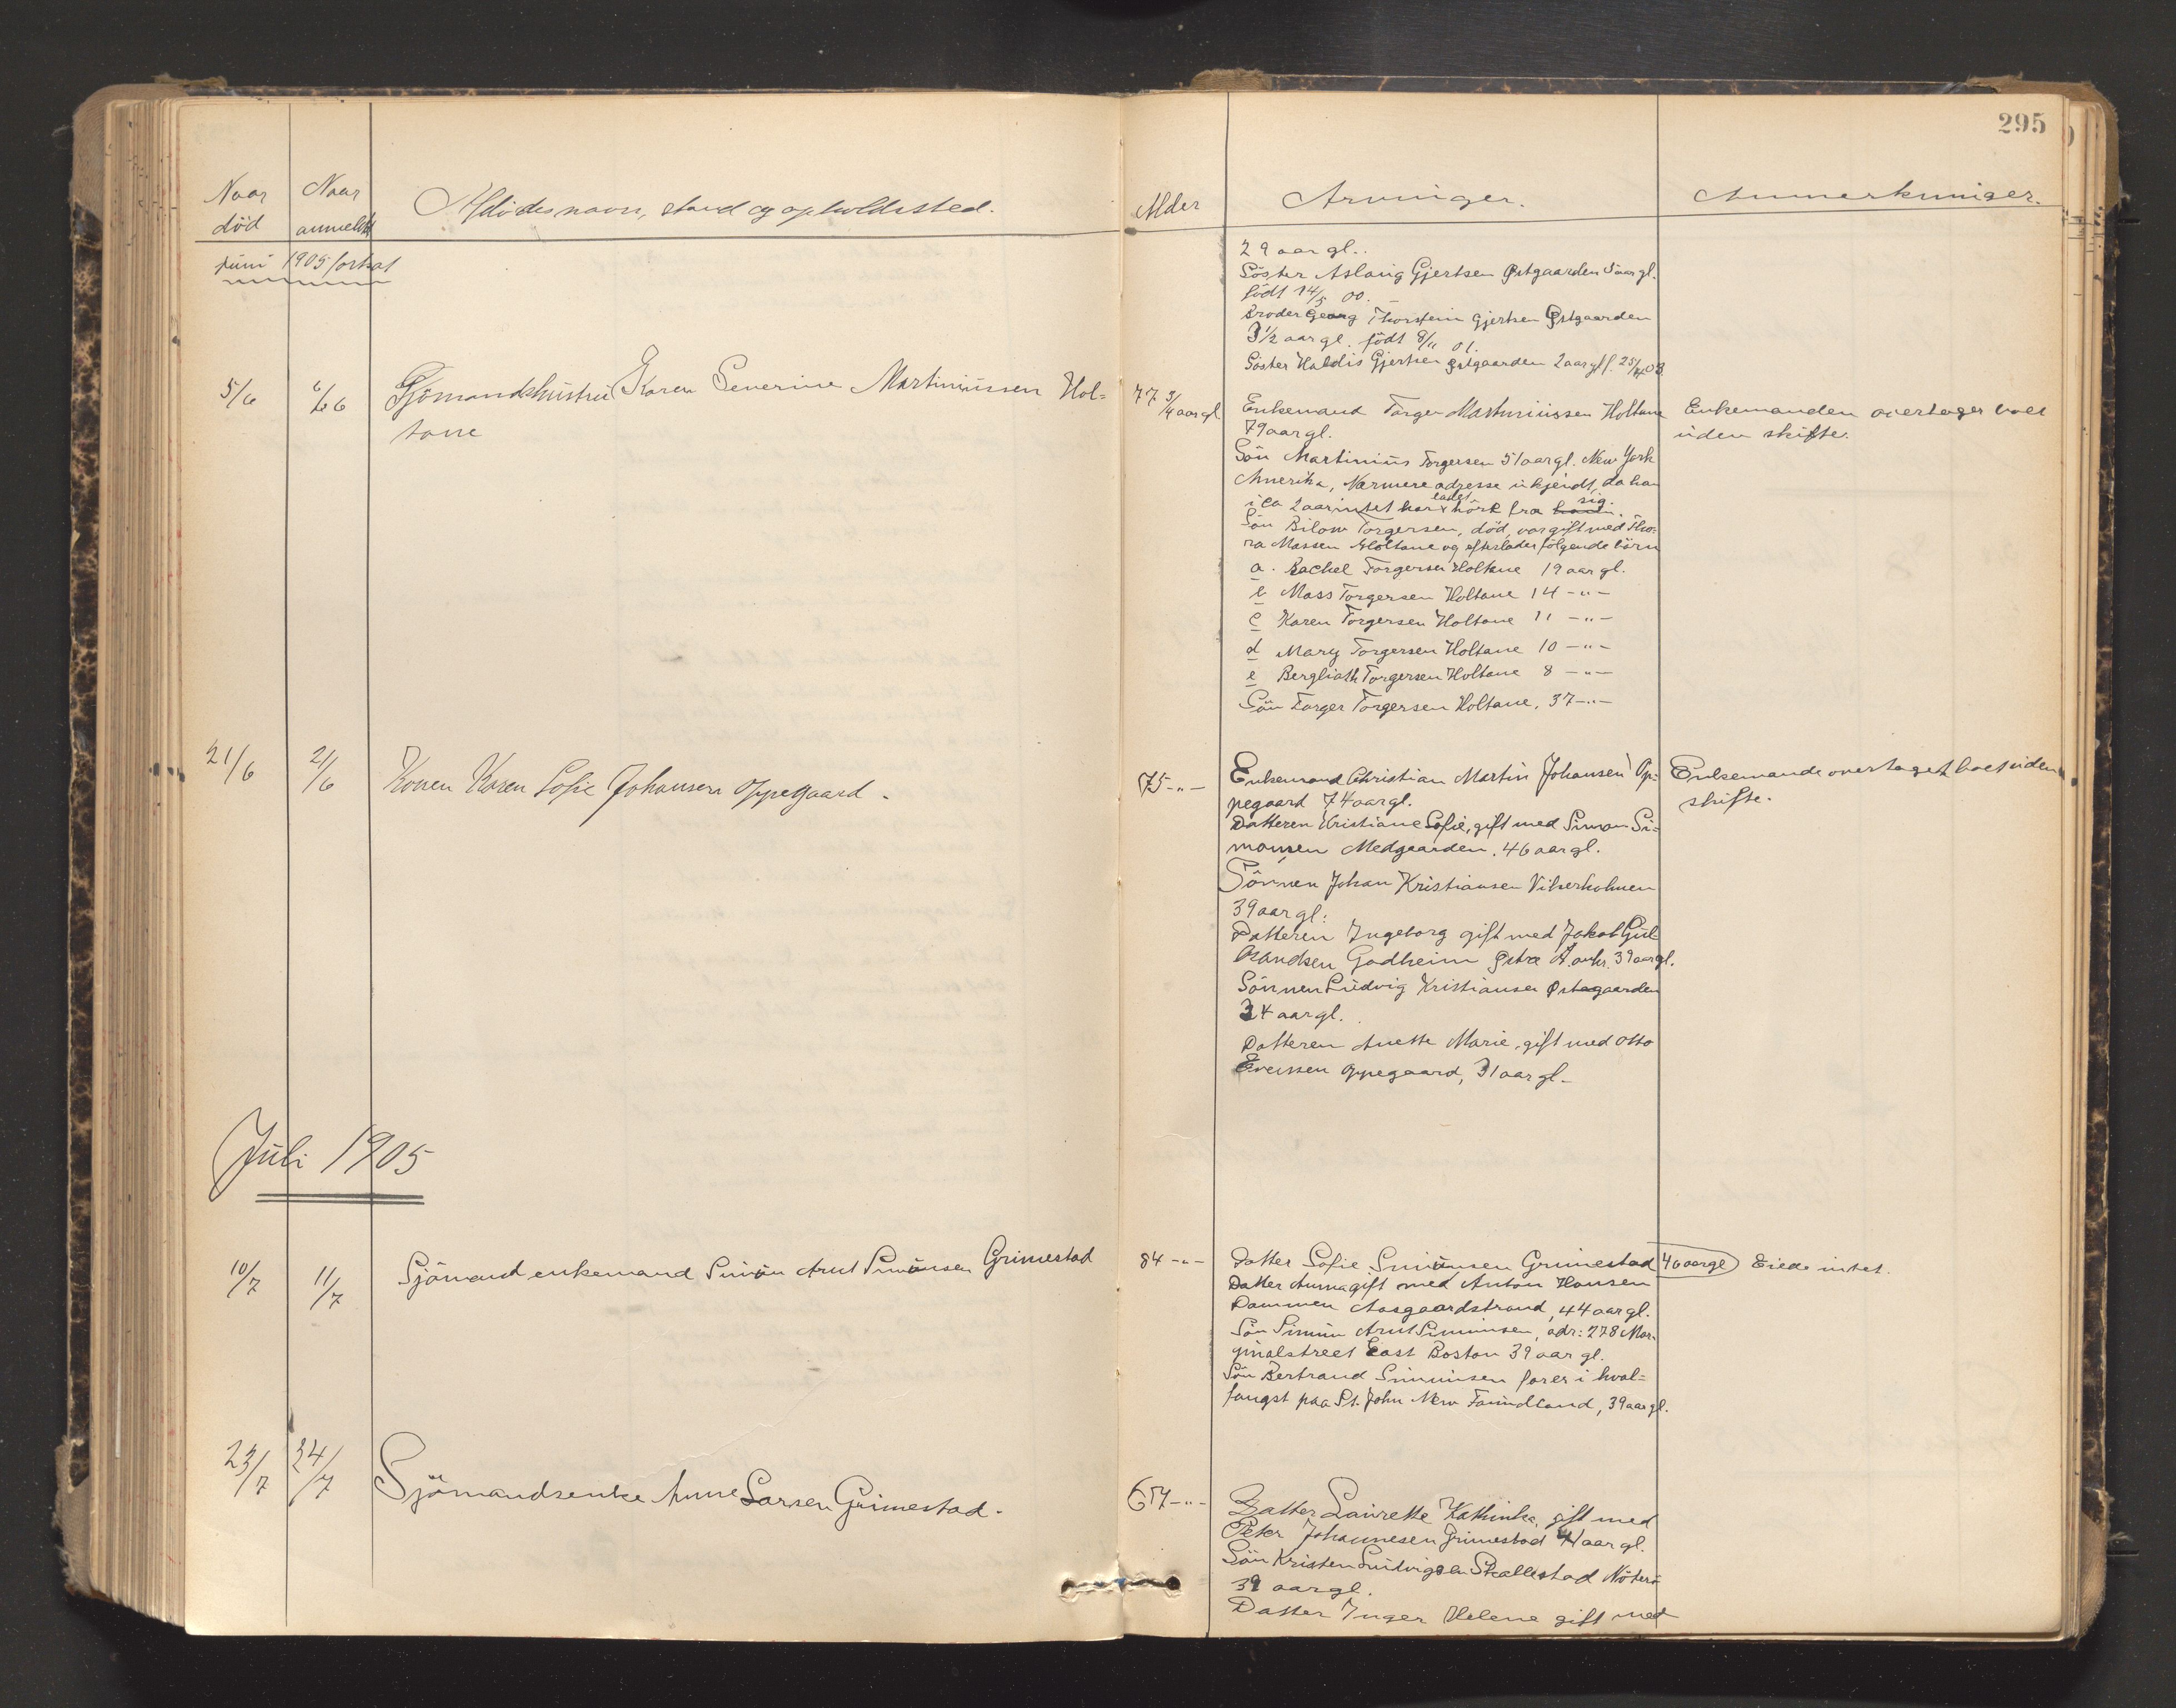 295
Naar død
Naar anmeldt
Afdødes navn, stand og opholdssted.
Alder
Arvinger.
Anmerkninger.
Juni 1905 fortsat
29 aar gl.
Söster Aslaug Gjertsen Østgaarden 5 aar gl.
födt 14/5 00.
Broder Georg Thorstein Gjertsen Østgaarden
3 1/2 aar gl. födt 9/11 01.
Söster Haldis Gjertsen Østgaarden 2 aar gl f. 25/4 03.
5/6 6/6 Sjömandshustru Karen Severine Martiniussen Hol=
tane
77 3/4 aar gl
Enkemand Torger Martiniussen Holtane
79 aar gl.
Sön Martinius Torgersen 51 aar gl. New York
Amerika, Nærmere adresse ukjendt, da han
i ca 2 aar intet har ladet hört fra ham sig.
Sön Bilow Torgersen, död, var gift med Tho=
ra Massen Holtane og efterlader fölgende börn
a. Rachel Torgersen Holtane 19 aar gl.
b Mass Torgersen Holtane 14 -"-
c Karen Torgersen Holtane 11 -"-
d Mary Torgersen Holtane 10 -"-
e Bergliath Torgersen Holtane 8 -"-
Sön Torger Torgersen Holtane, 37 -"-
Enkemanden overtager boet
uden skifte.
21/6 21/6 Konen Karen Sofie Johansen Oppegaard.
75 -"-
Enkemand Christian Martin Johansen Op=
pegaard 74 aar gl.
Datteren Kristiane Sofie, gift med Simon Si=
monsen Medgaarden, 46 aar gl.
Sönnen Johan Kristiansen Vikerholmen
39 aar gl.
Datteren Ingeborg gift med Jakob Gul=
brandsen Godheim Østre 39 aar gl.
Sönnen Ludvig Kristiansen Østegaarden
34 aar gl.
Datteren Anette Marie, gift med Otto
Evensen Oppegaard, 31 aar gl.
Enkemande overtaget boet uden
skifte.
Juli 1905
10/7 11/7 Sjömand enkemand Simon Arnt Simonsen Grimestad
84 -"-
Datter Sofie Simonsen Grimestad 46 aar gl
Datter Anna gift med Anton Hansen
Dammen Aasgaardstrand, 44 aar gl.
Sön Simon Arnt Simonsen, adr: 278 Mar=
ginalstreet East Boston 39 aar gl.
Sön Bertrand Simonsen farer i hval=
fangst paa St. John New Foundland, 39 aar gl.
Eiede intet.
23/7 24/7 Sjömandsenke Anne Larsen Grimestad.
67 -"-
Datter Laurette Kathinka, gift med
Peter Johannesen Grimestad 41 aar gl.
Sön Kristen Ludvigsen Skallestad Nöterö
39 aar gl.
Datter Inger Helene gift med